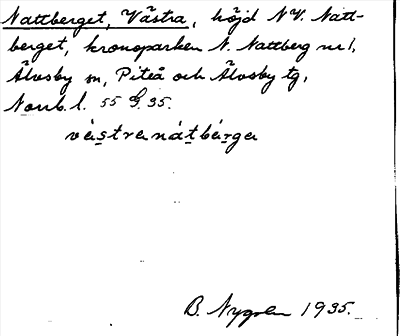 Nattberget, Västra, höjd NV. Natt-
berget, kronoparken N. Nattberg nr 1,
Älvsby sn, Piteå och Älvsby tg,
Norrb. l. 55 G. 35.
västranátbárga
B. Nygren 1935.